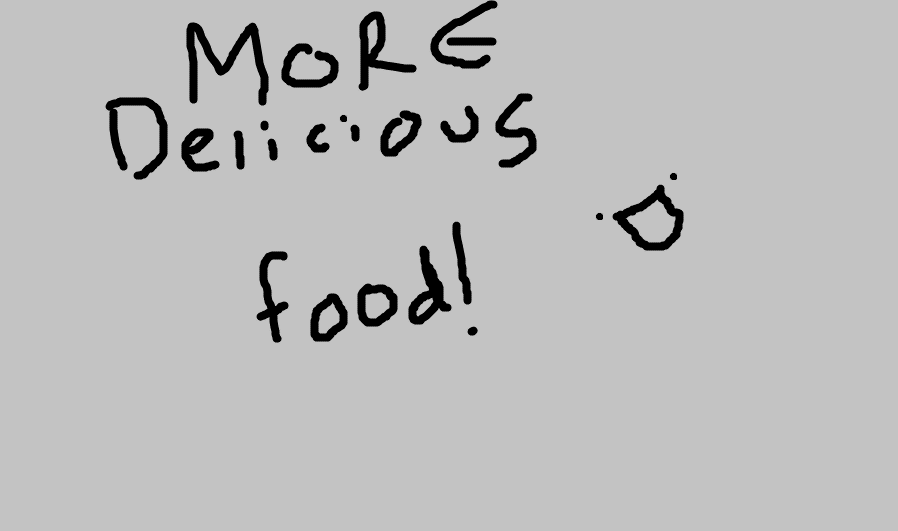 MORE
Delicious
food!